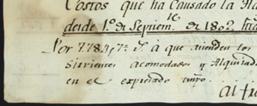 Costos que ha Causado la
desde 1.º de Septiem.e de 1802
Por 778 p.s 7 r.s á que asienden los
Sirvientes Acomodados y Alquilad
en el expresado tmpo
Al fr